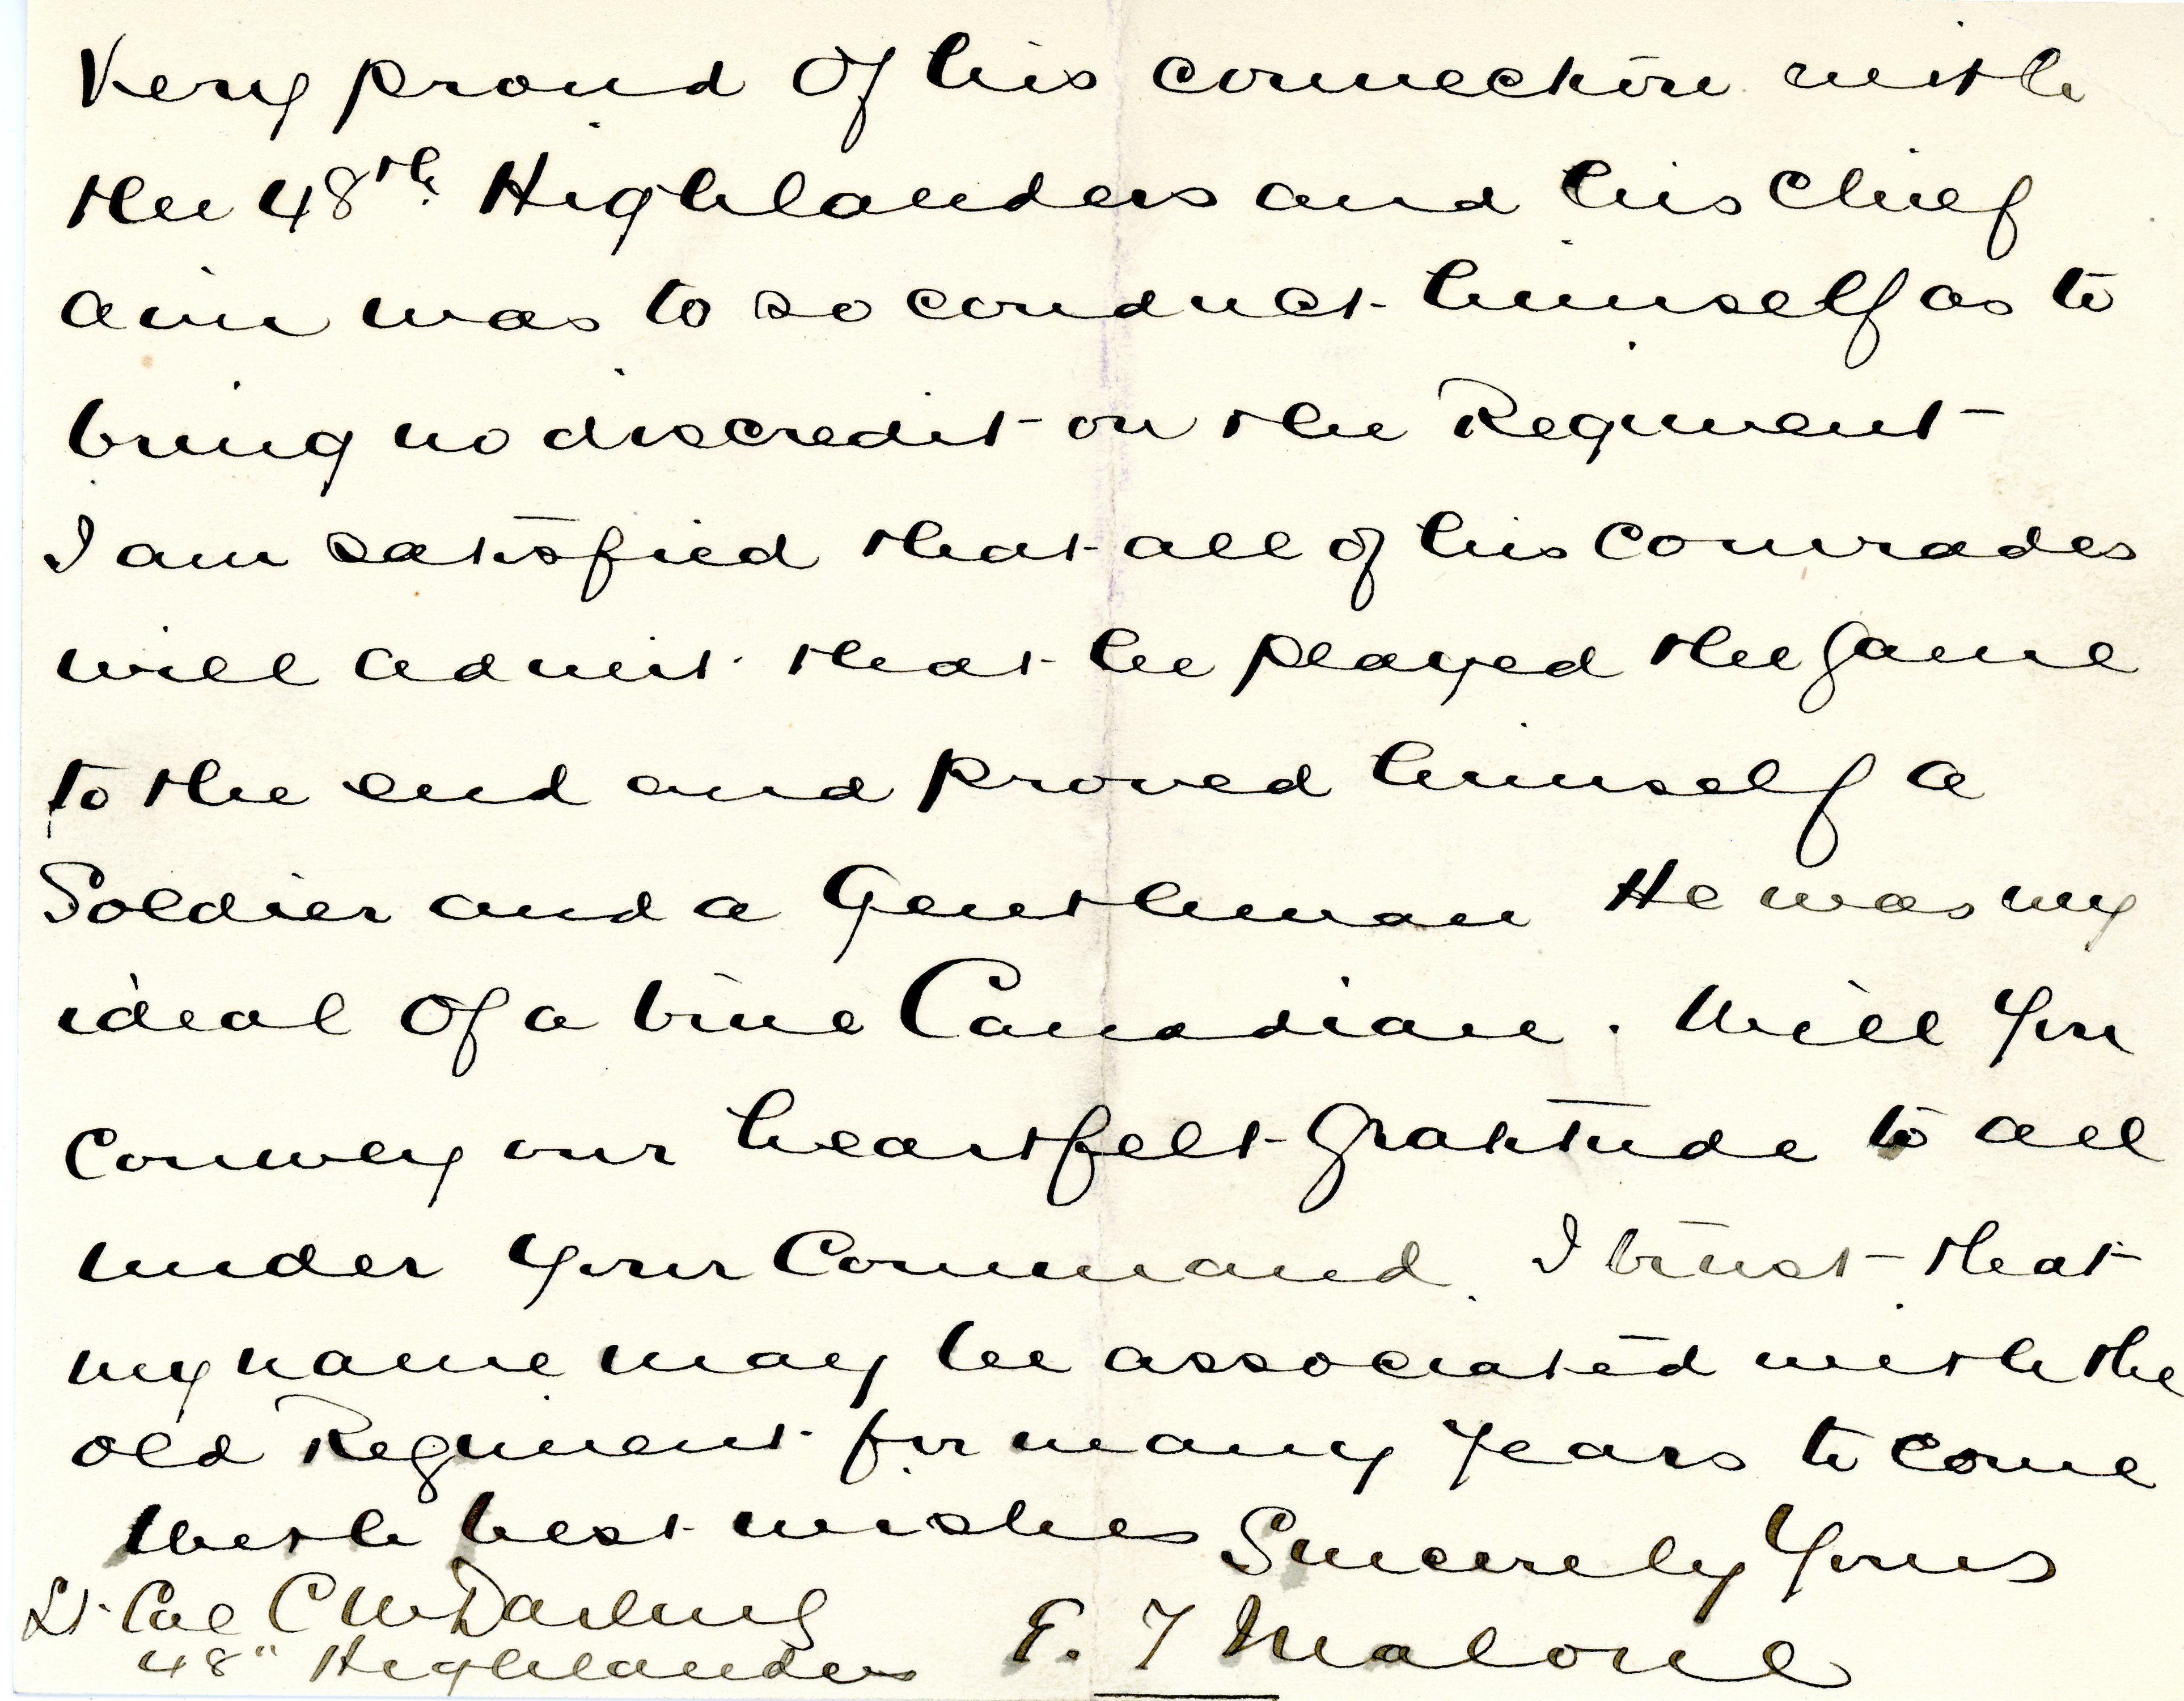 Very proud of his connection with
the 48th Highlanders and his chief
aim was to so conduct himself as to
bring no discredit on the Regiment
I am satisfied that all of his Comrades
will admit that he played the game
to the end and proved himself a
Soldier and a Gentleman He was my
ideal of a true Canadian. Will you
Convey our heartfelt gratitude to all
under your Command. I trust that
my name may be associated with the
old Regiment for many years to come
With best wishes Sincerely Yours
Lt. Col C W Darling E. T Malone
48" Highlanders